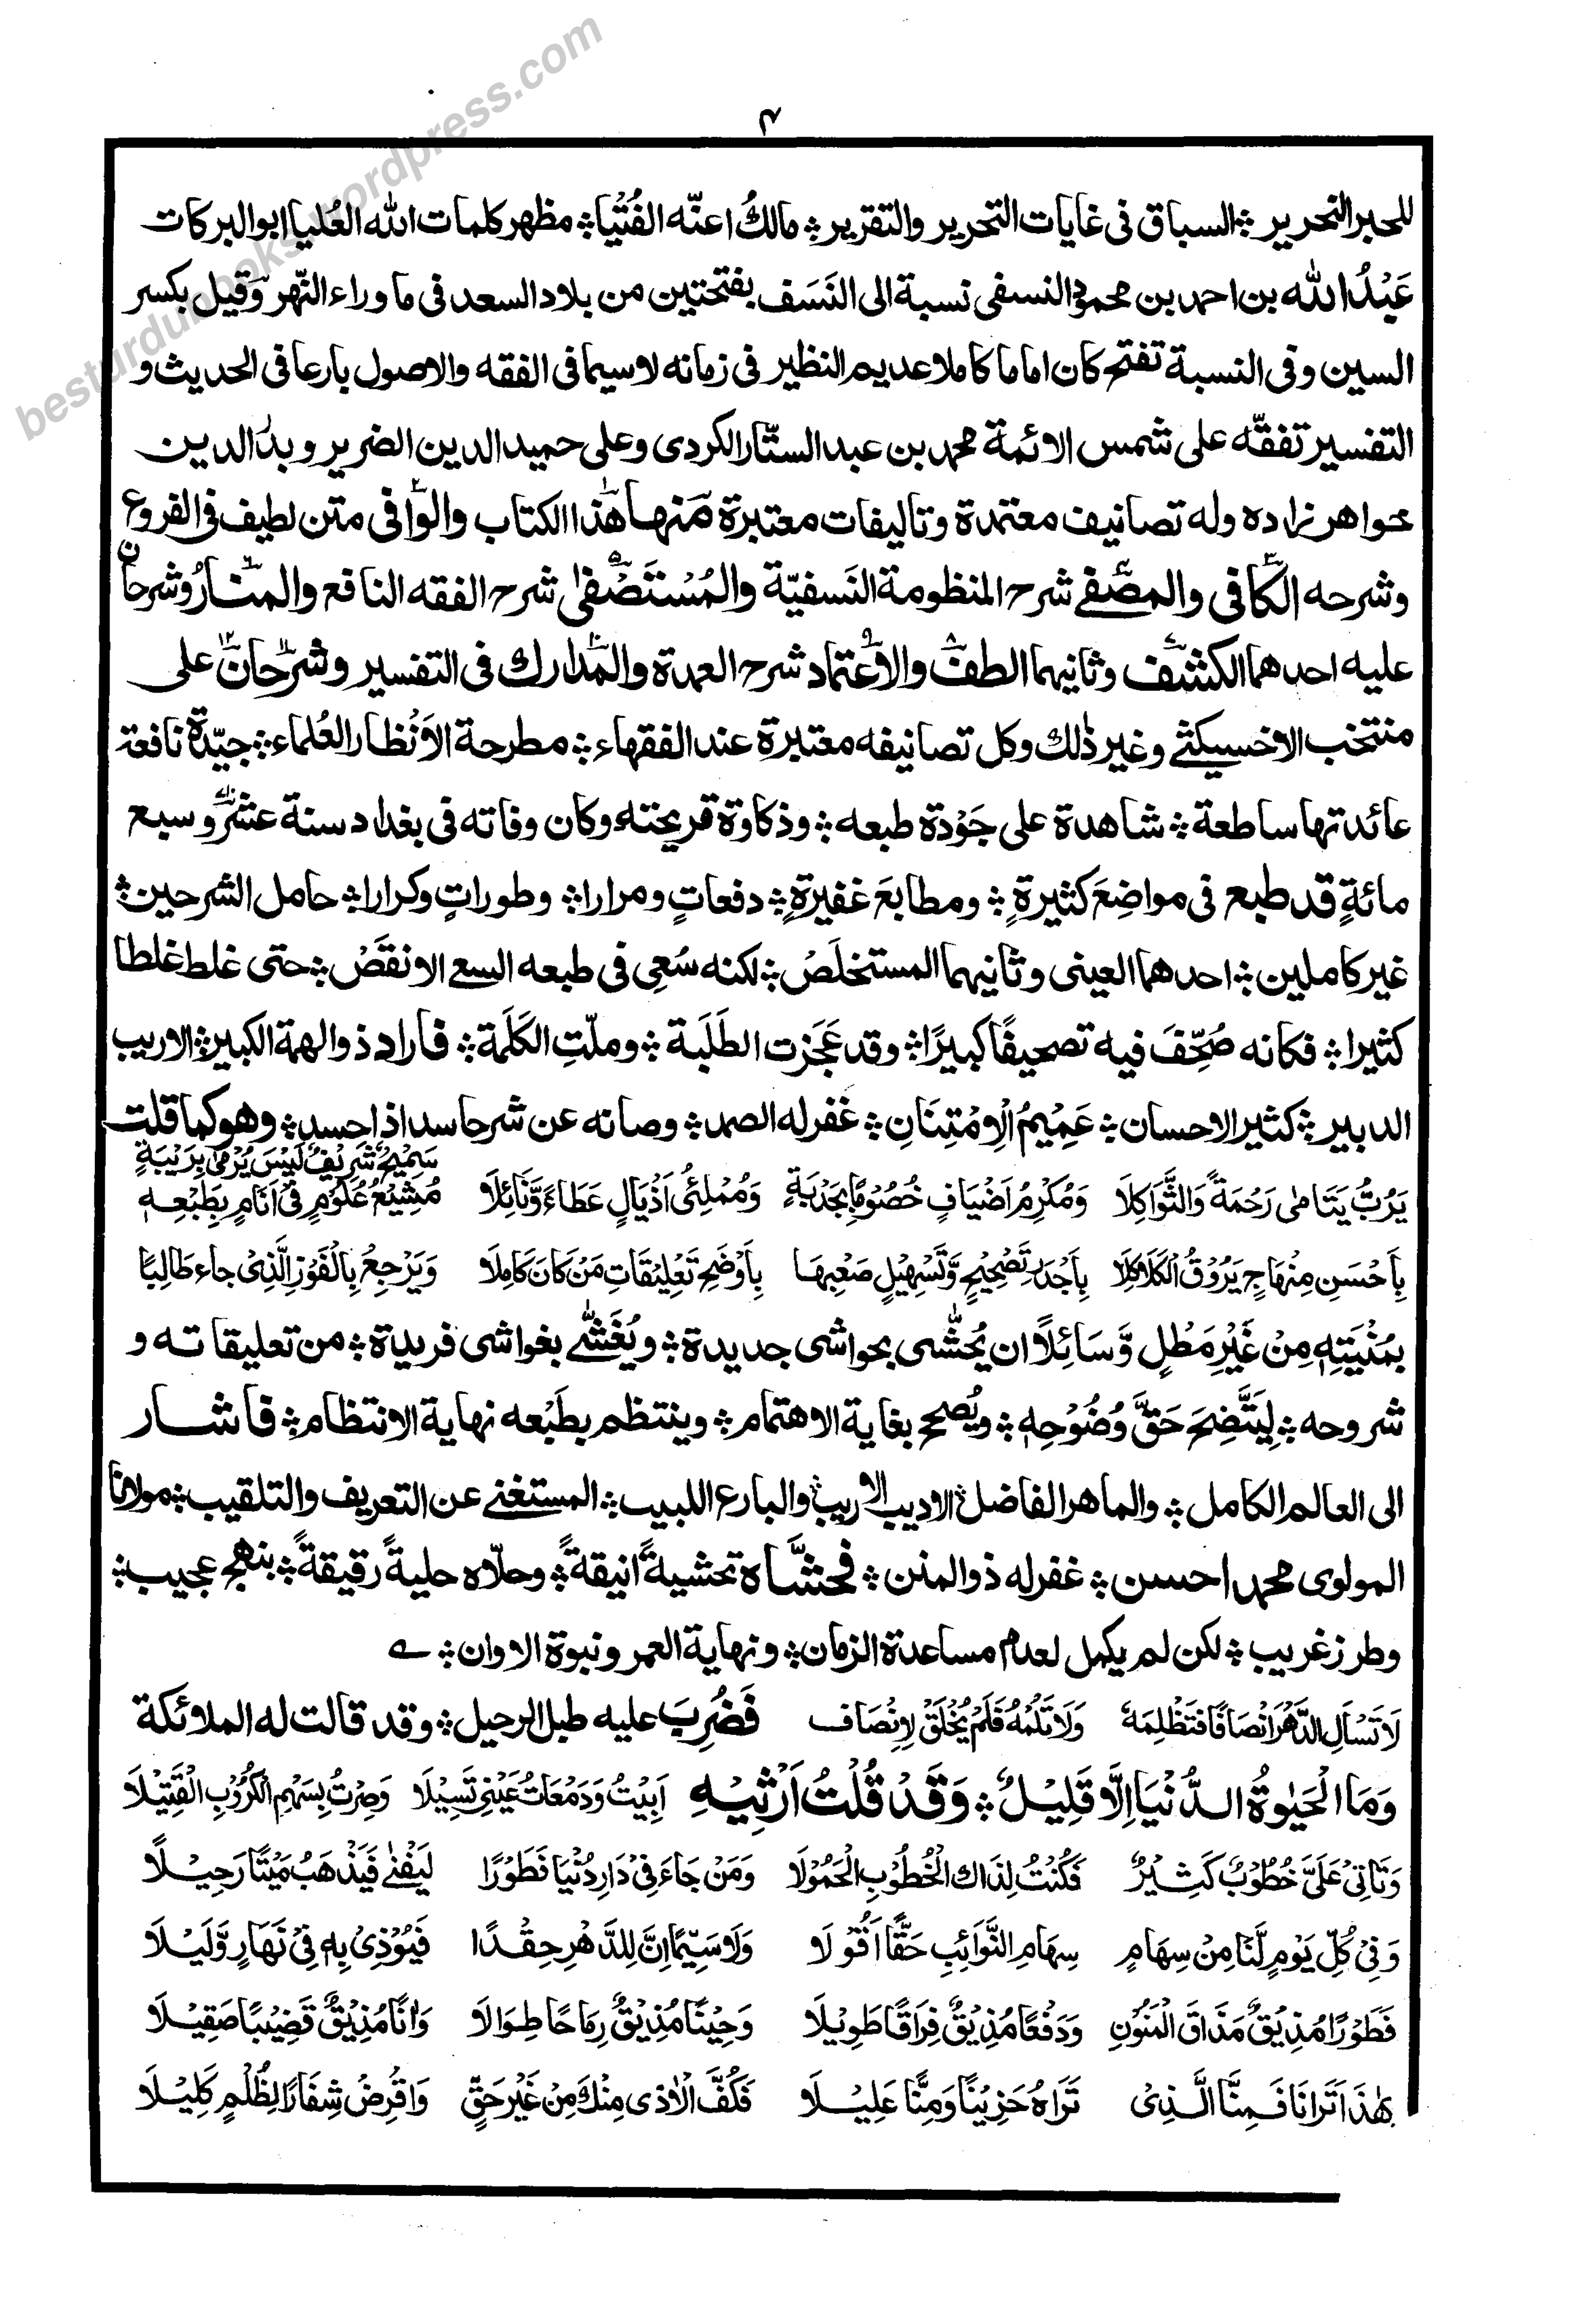 besturdubooks.wordpress.com
۴
للحبر النحرير ؞ السباق فى غايات التحرير والتقرير ؞ مالكُ اعنّه الفُتْيا ؞ مظهر كلمات الله العُليا ابو البركات
عَبْدُ الله بن احمد بن محمود النسفى نسبة الى النَسَف بفتحتين من بلاد السعد فى ما وراء النّهر وَقيل بكسر
السين وفى النسبة تفتح كان اماما كاملا عديم النظير فى زمانه لا سيما فى الفقه والاصول بارعا فى الحديث و
التفسير تفقّه على شمس الائمة محمد بن عبد الستّار الكردى وعلى حميد الدين الضرير و بدر الدين
خواهر زاده وله تصانيف معتمدة وتاليفات معتبرة منها هٰذا الكتاب والوافى متن لطيف فى الفروع
وشرحه الكافى والمصفے شرح المنظومة النَسفيّة والمُسْتَصْفىٰ شرح الفقه النافع والمنارُ وشرحان
عليه احدهما الكشف وثانيهما الطف والاعتماد شرح العمدة والمدارك فى التفسير وشرحان على
منتخب الاخسيكثے وغير ذٰلك وكل تصانيفه معتبرة عند الفقهاء ؞ مطرحة الاَنْظار العُلماء ؞ جيّدة نافعة
عائدتها ساطعة ؞ شاهدة على جَوْدة طبعه ؞ وذكاوة قريحته وكان وفاته فى بغداد سنة عشر وسبع
مائةٍ قد طبع فى مواضِعَ كثيرةٍ ؞ ومطابعَ غفيرةٍ ؞ دفعاتٍ ومرارا ؞ وطوراتٍ وكرارا ؞ حامل الشرحين ؞
غير كاملين ؞ احدهما العينى وثانيهما المستخلَصْ ؞ لكنه سُعِى فى طبعه السعے الانقَصْ ؞ حتى غلط غلطا
كثيرا ؞ فكانه صُحِّفَ فيه تصحيفًا كبيرًا ؞ وقد عَجَزت الطَلَبة ؞ وملّتِ الكَلَمة ؞ فاراد ذو الهمة الكبير ؞ الاريب
الدبير ؞ كثير الاحسان ؞ عَمِيمُ الِامْتِنَانِ ؞ غفر له الصمد ؞ وصانه عن شر حاسد اذا حسد ؞ وهو كما قلت
يَرُبُّ يَتَامٰى رَحْمَةً وَالثَّوَاكِلَا وَمُكْرِمُ اَضْيَافٍ خُصُوْمًا بِجَدْبَةٍ وَمُمْلِئُ اَذْيَالٍ عَطَاءً وَّنَائِلَا سَمِيْحٌ شَرِيْفٌ لَيْسَ يُرْمٰى بِرَيْبَةٍ مُشِيْعُ عُلُوْمٍ فِىْ اَنَامٍ بِطَبْعِهٖ
بِاَحْسَنِ مِنْهَاجٍ يَرُوْقُ الْكَلَاكِلَا بِاَجْدَرِ تَصْحِيْحٍ وَّتَسْهِيْلِ صَعْبِهَا بِاَوْضَحِ تَعْلِيْقَاتِ مَنْ كَانَ كَامِلَا وَيَرْجِعُ بِالْفَوْزِ الَّذِىْ جاء طَالِبًا
بِمُنْيَتِهٖ مِنْ غَيْرِ مَطْلٍ وَّسَائِلًا ان يُحَشّٰى بحواشى جديدة ؞ ويُغَشّٰے بغواشى فريدة ؞ من تعليقاته و
شروحه ؞ لِيَتَّضِحَ حَقَّ وُضُوْحِهٖ ؞ ويُصحح بغاية الاهتمام ؞ وينتظم بطَبْعه نهاية الانتظام ؞ فاشار
الى العالم الكامل ؞ والماهر الفاضل ؞ الاديب الاريب ؞ والبارع اللبيب ؞ المستغنے عن التعريف والتلقيب ؞ مولانا
المولوى محمد احسن ؞ غفر له ذو المنن ؞ فحشَّاه تحشيةً انيقةً ؞ وحلّاه حليةً رقيقةً ؞ بنهج عجيب ؞
وطرز غريب ؞ لكن لم يكمل لعدم مساعدة الزمان ؞ ونهاية العمر ونبوة الاوان ؞ ے
لَا تَسْاَلِ الدَّهْرَ اِنْصَافًا فَتَظْلِمَهٗ وَلَا تَلُمْهُ فَلَمْ يُخْلَقْ لِاِنْصَاف فَضُرِبَ عليه طبل الرحيل ؞ وقد قالت له الملائكة
وَمَا الْحَيٰوةُ الدُّنْيَا اِلَّا قَلِيْلٌ ؞ وَقَدْ قُلْتُ اَرْثِيْهِ اَبِيْتُ وَدَمْعَاتُ عَيْنِىْ تَسِيْلَا وَصِرْتُ بِسَهْمِ الْكُرُوْبِ الْقَتِيْلَا
وَتَاتِىْ عَلَىَّ خُطُوْبٌ كَثِيْرٌ فَكُنْتُ لِذَاكَ الْخُطُوْبِ الْحَمُوْلَا وَمَنْ جَاءَ فِىْ دَارِ دُنْيَا فَطَوْرًا لَيَفْنٰى فَيَذْهَبُ مَيْتًا رَحِيْلًا
وَفِىْ كُلِّ يَوْمٍ لَّنَا مِنْ سِهَامٍ سِهَامِ النَّوَائِبِ حَقًّا اَقُوْلَا وَلَا سِيَّمَا اِنَّ لِلدَّهْرِ حِقْدًا فَيُوْذِىْ بِهٖ فِىْ نَهَارٍ وَّلَيْلَا
فَطَوْرًا مُذِيْقٌ مَذَاقَ الْمَنُوْنِ وَدَفْعًا مُذِيْقٌ فِرَاقًا طَوِيْلَا وَحِيْنًا مُذِيْقٌ رِمَاحًا طِوَالَا وَاٰنًا مُذِيْقٌ قَضِيْبًا صَقِيْلَا
بِهٰذَا تَرَانَا فَمِنَّا الَّذِىْ تَرَاهُ حَزِيْنًا وَمِنَّا عَلِيْلَا فَكُفَّ الْاَذٰى مِنْكَ مِنْ غَيْرِ حَقٍّ وَاقْرِضْ شِفَارًا لِظُلْمٍ كَلِيْلَا